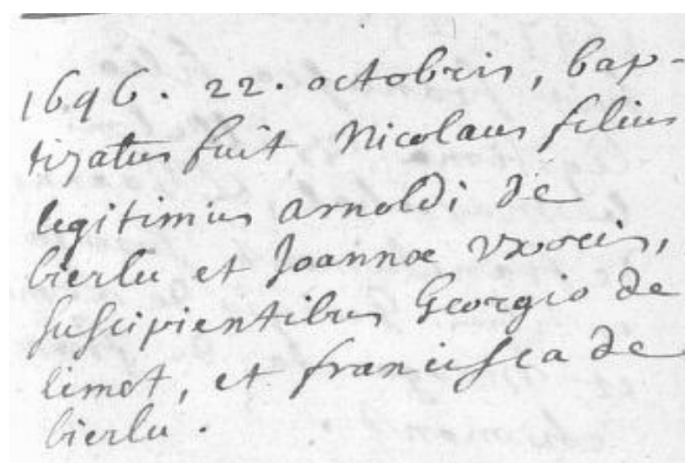 1696. 22. octobris, bap-
tizatus fuit Nicolaus filius
legitimus arnoldi de
bierlu et Joannæ Uxoris,
suscipientibus Georgio de
limet, et francisca de
bierlu.